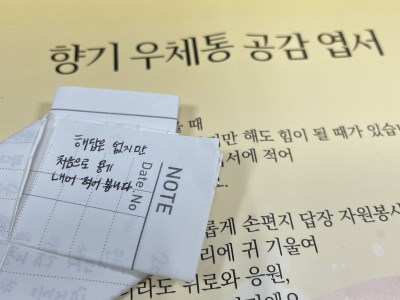 향기 우체통 공감 엽서
때
만 해도 힘이 될 때가 있습니
서에 적어
롭게 손편지 답장 자원봉사
리에 귀 기울여
라도 위로와 응원,
해답은 없지만
처음으로 용기
내어 적어 봅니다
NOTE
Date. No